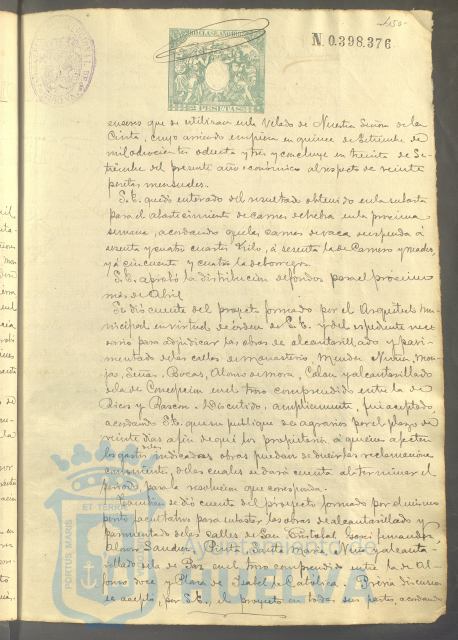 150
N. 0.398.376
2 PESETAS
enseres que se utilizan en la Velada de Nuestra Señora de la
Cinta, cuyo arriendo empieza en quince de Setiembre de
mil ochocientos ochenta y tres y concluye en treinta de Se-
tiembre del presente año económico al respecto de veinte
pesetas mensuales.
S. E. quedó enterado del resultado obtenido en la subasta
para el abastecimiento de carnes de hebra en la próxima
semana, acordando que las carnes de vaca se espenda a
sesenta y cuatro cuartos kilo, a sesenta la de Carnero y macho
y a cincuenta y cuatro la de borrega.
S. E. aprobó la distribución de fondos para el próximo
mes de Abril
Se dió cuenta del proyecto formado por el Arquitecto Mu-
nicipal en virtud de órden de S. E. y del espediente nece-
sario para adjudicar las obras de alcantarillado y pavi-
mentado de las calles de Monasterio, Mendez Nuñez, Mon-
jas, Señas, Bocas, Alonso de Mora, Colon y alcantarillado
de la de Concepcion en el trozo comprendido entre la de
Rico y Rascon. Discutido, ampliamente, fué aceptado,
acordando S. E. que se publique a los agrarios por el plazo de
veinte dias a fin de que los propietarios á quienes afecten
los gastos de las indicadas obras puedan deducir las reclamaciones
convenientes, de las cuales se dará cuenta al terminar el
periodo para la resolucion que corresponda.
Tambien se dió cuenta del proyecto formado por el mismo
perito facultativo para subastar las obras de alcantarillado y
pavimentado de las calles de San Cristobal, Goni, Fernandez,
Alonso Sanchez, Puerto, Santa Maria, Nueva y alcanta-
rillado de la de Paz en el trozo comprendido entre la de Al-
fonso doce y Plaza de Isabel la Católica. Previa discusion
se aceptó, por S. E., el proyecto en todas sus partes, acordando
PORTUS MARIS
ET TERRAE
Ayuntamiento de
HUELVA